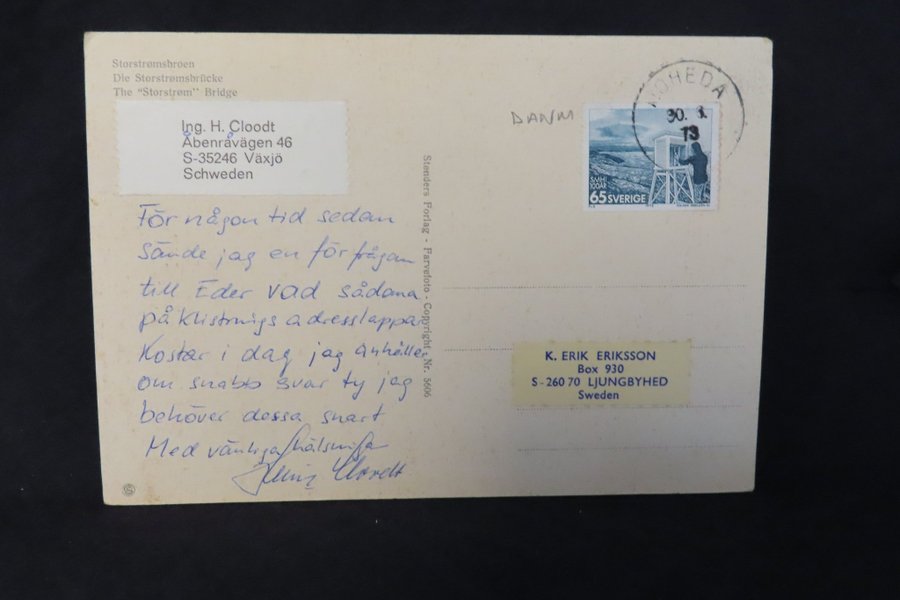 Storstrømsbroen
Die Storstrømsbrücke
The "Storstrøm" Bridge
Ing. H. Cloodt
Åbenråvägen 46
S-35246 Växjö
Schweden
För någon tid sedan
sände jag en förfrågan
till Eder vad sådana
påklistrings adresslappar
kostar i dag jag anhåller
om snabb svar ty jag
behöver dessa snart
Med vänliga hälsningar
Cloodt
Stenders Forlag - Farvefoto - Copyright - Nr. 5606
DANM
MOHEDA
30.
73
SMHI
100 ÅR
65 SVERIGE
K. ERIK ERIKSSON
Box 930
S-260 70 LJUNGBYHED
Sweden